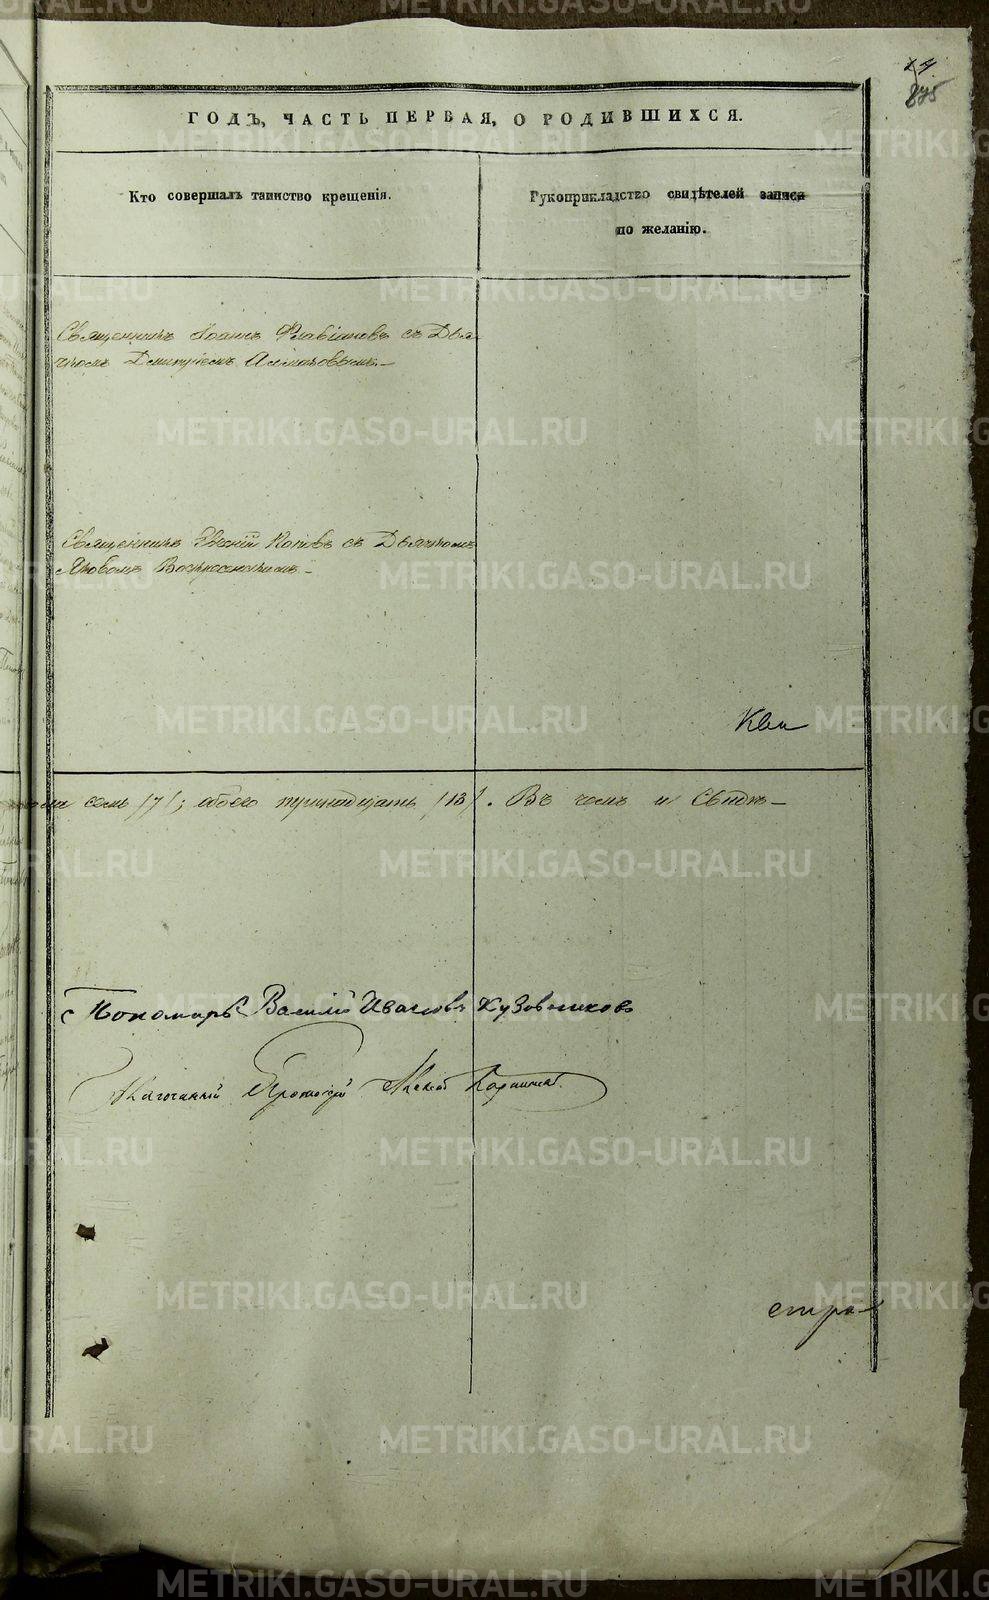 875
ГОДЪ, ЧАСТЬ ПЕРВАЯ, О РОДИВШИХСЯ.
Кто совершалъ таинство крещенія.
Рукоприкладство свидѣтелей записи
по желанію.
Священникъ Іоаннъ Флавіановъ съ Дья-
чкомъ Димитріемъ
Священникъ Евгеній Поповъ съ Дьячкомъ
Яковомъ Воскресенскимъ
Кви
семь /7/; обоего тринадцать /13/. Въ чемъ и Свидѣ-
Пономарь Василій Ивановъ Кузовниковъ
Благочинный Протоіерей Алексѣй
стра-
METRIKI.GASO-URAL.RU